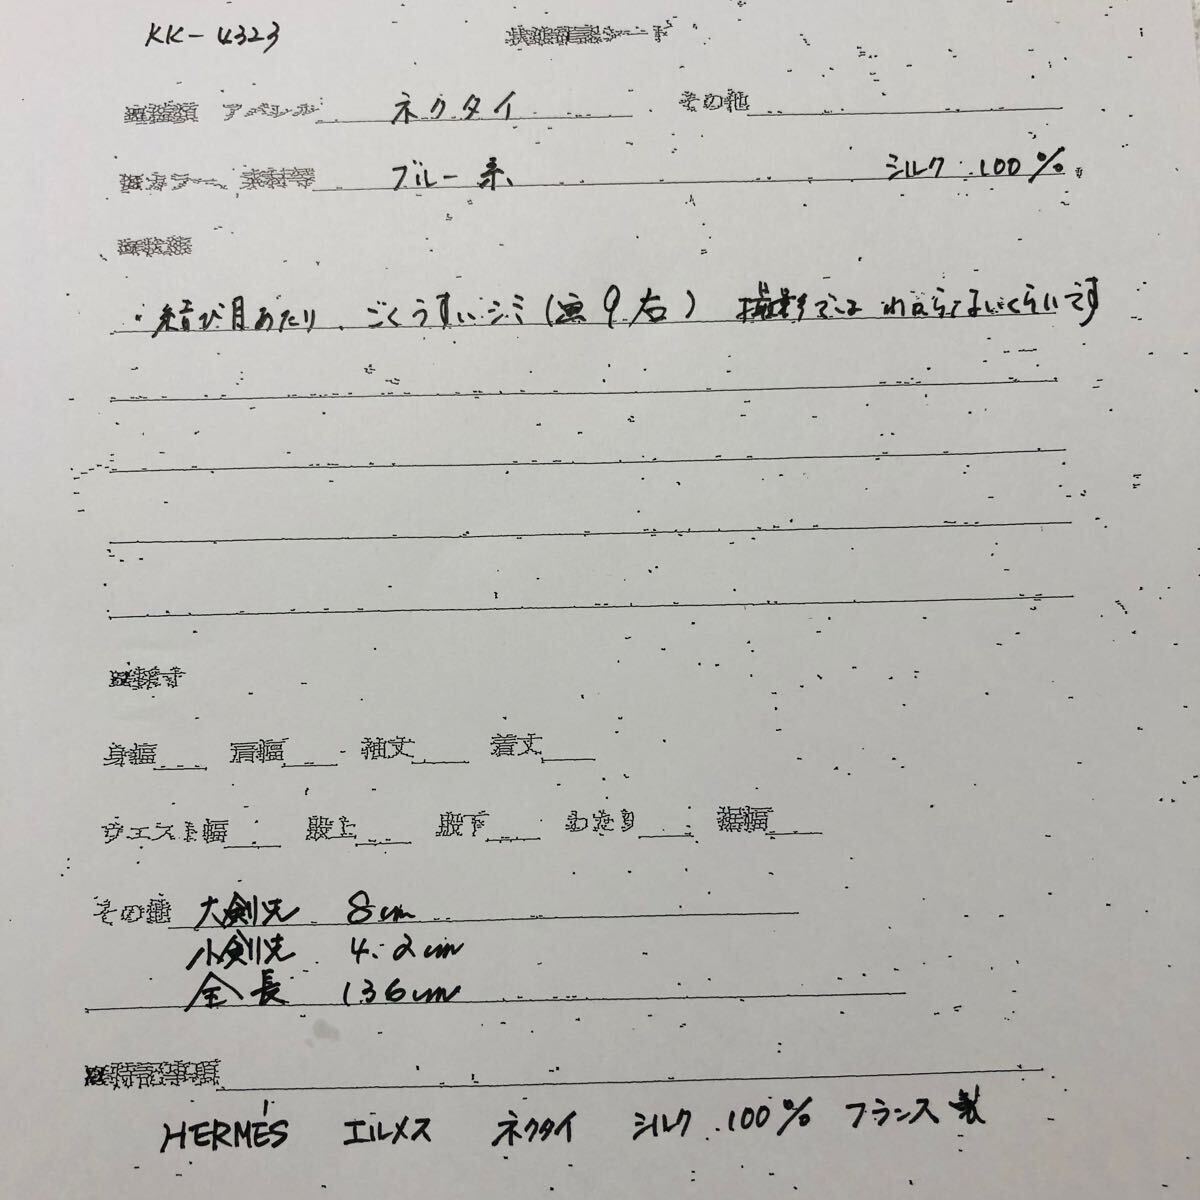 KK-4323
アパレル ネクタイ その他
カラー、素材等 ブルー系、 シルク 100%
・結び目あたり、ごくうすいシミ(画9右) 撮影ではわからないくらいです
採寸
身幅 肩幅 袖丈 着丈
ウエスト幅 股上 股下 わたり 裾幅
その他 大剣先 8cm
小剣先 4.2cm
全長 136cm
特記事項
HERMÈS エルメス ネクタイ シルク 100% フランス製